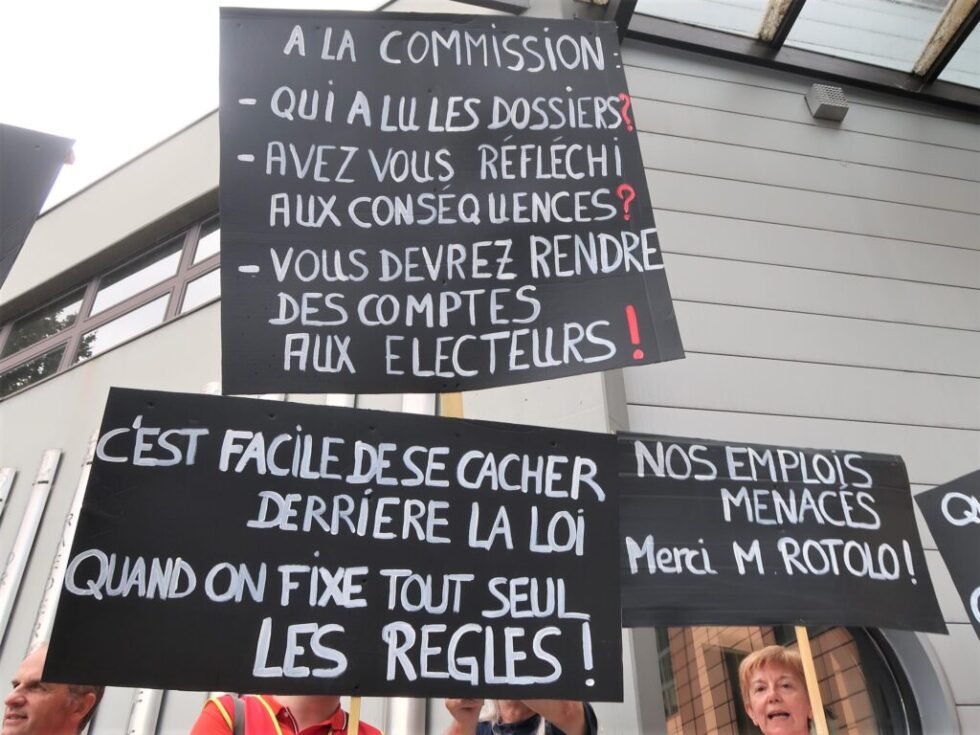 A LA COMMISSION:
- QUI A LU LES DOSSIERS?
- AVEZ VOUS RÉFLÉCHI
AUX CONSÉQUENCES?
- VOUS DEVREZ RENDRE
DES COMPTES
AUX ELECTEURS!
C'EST FACILE DE SE CACHER
DERRIERE LA LOI
QUAND ON FIXE TOUT SEUL
LES REGLES!
NOS EMPLOIS
MENACÉS
Merci M ROTOLO!